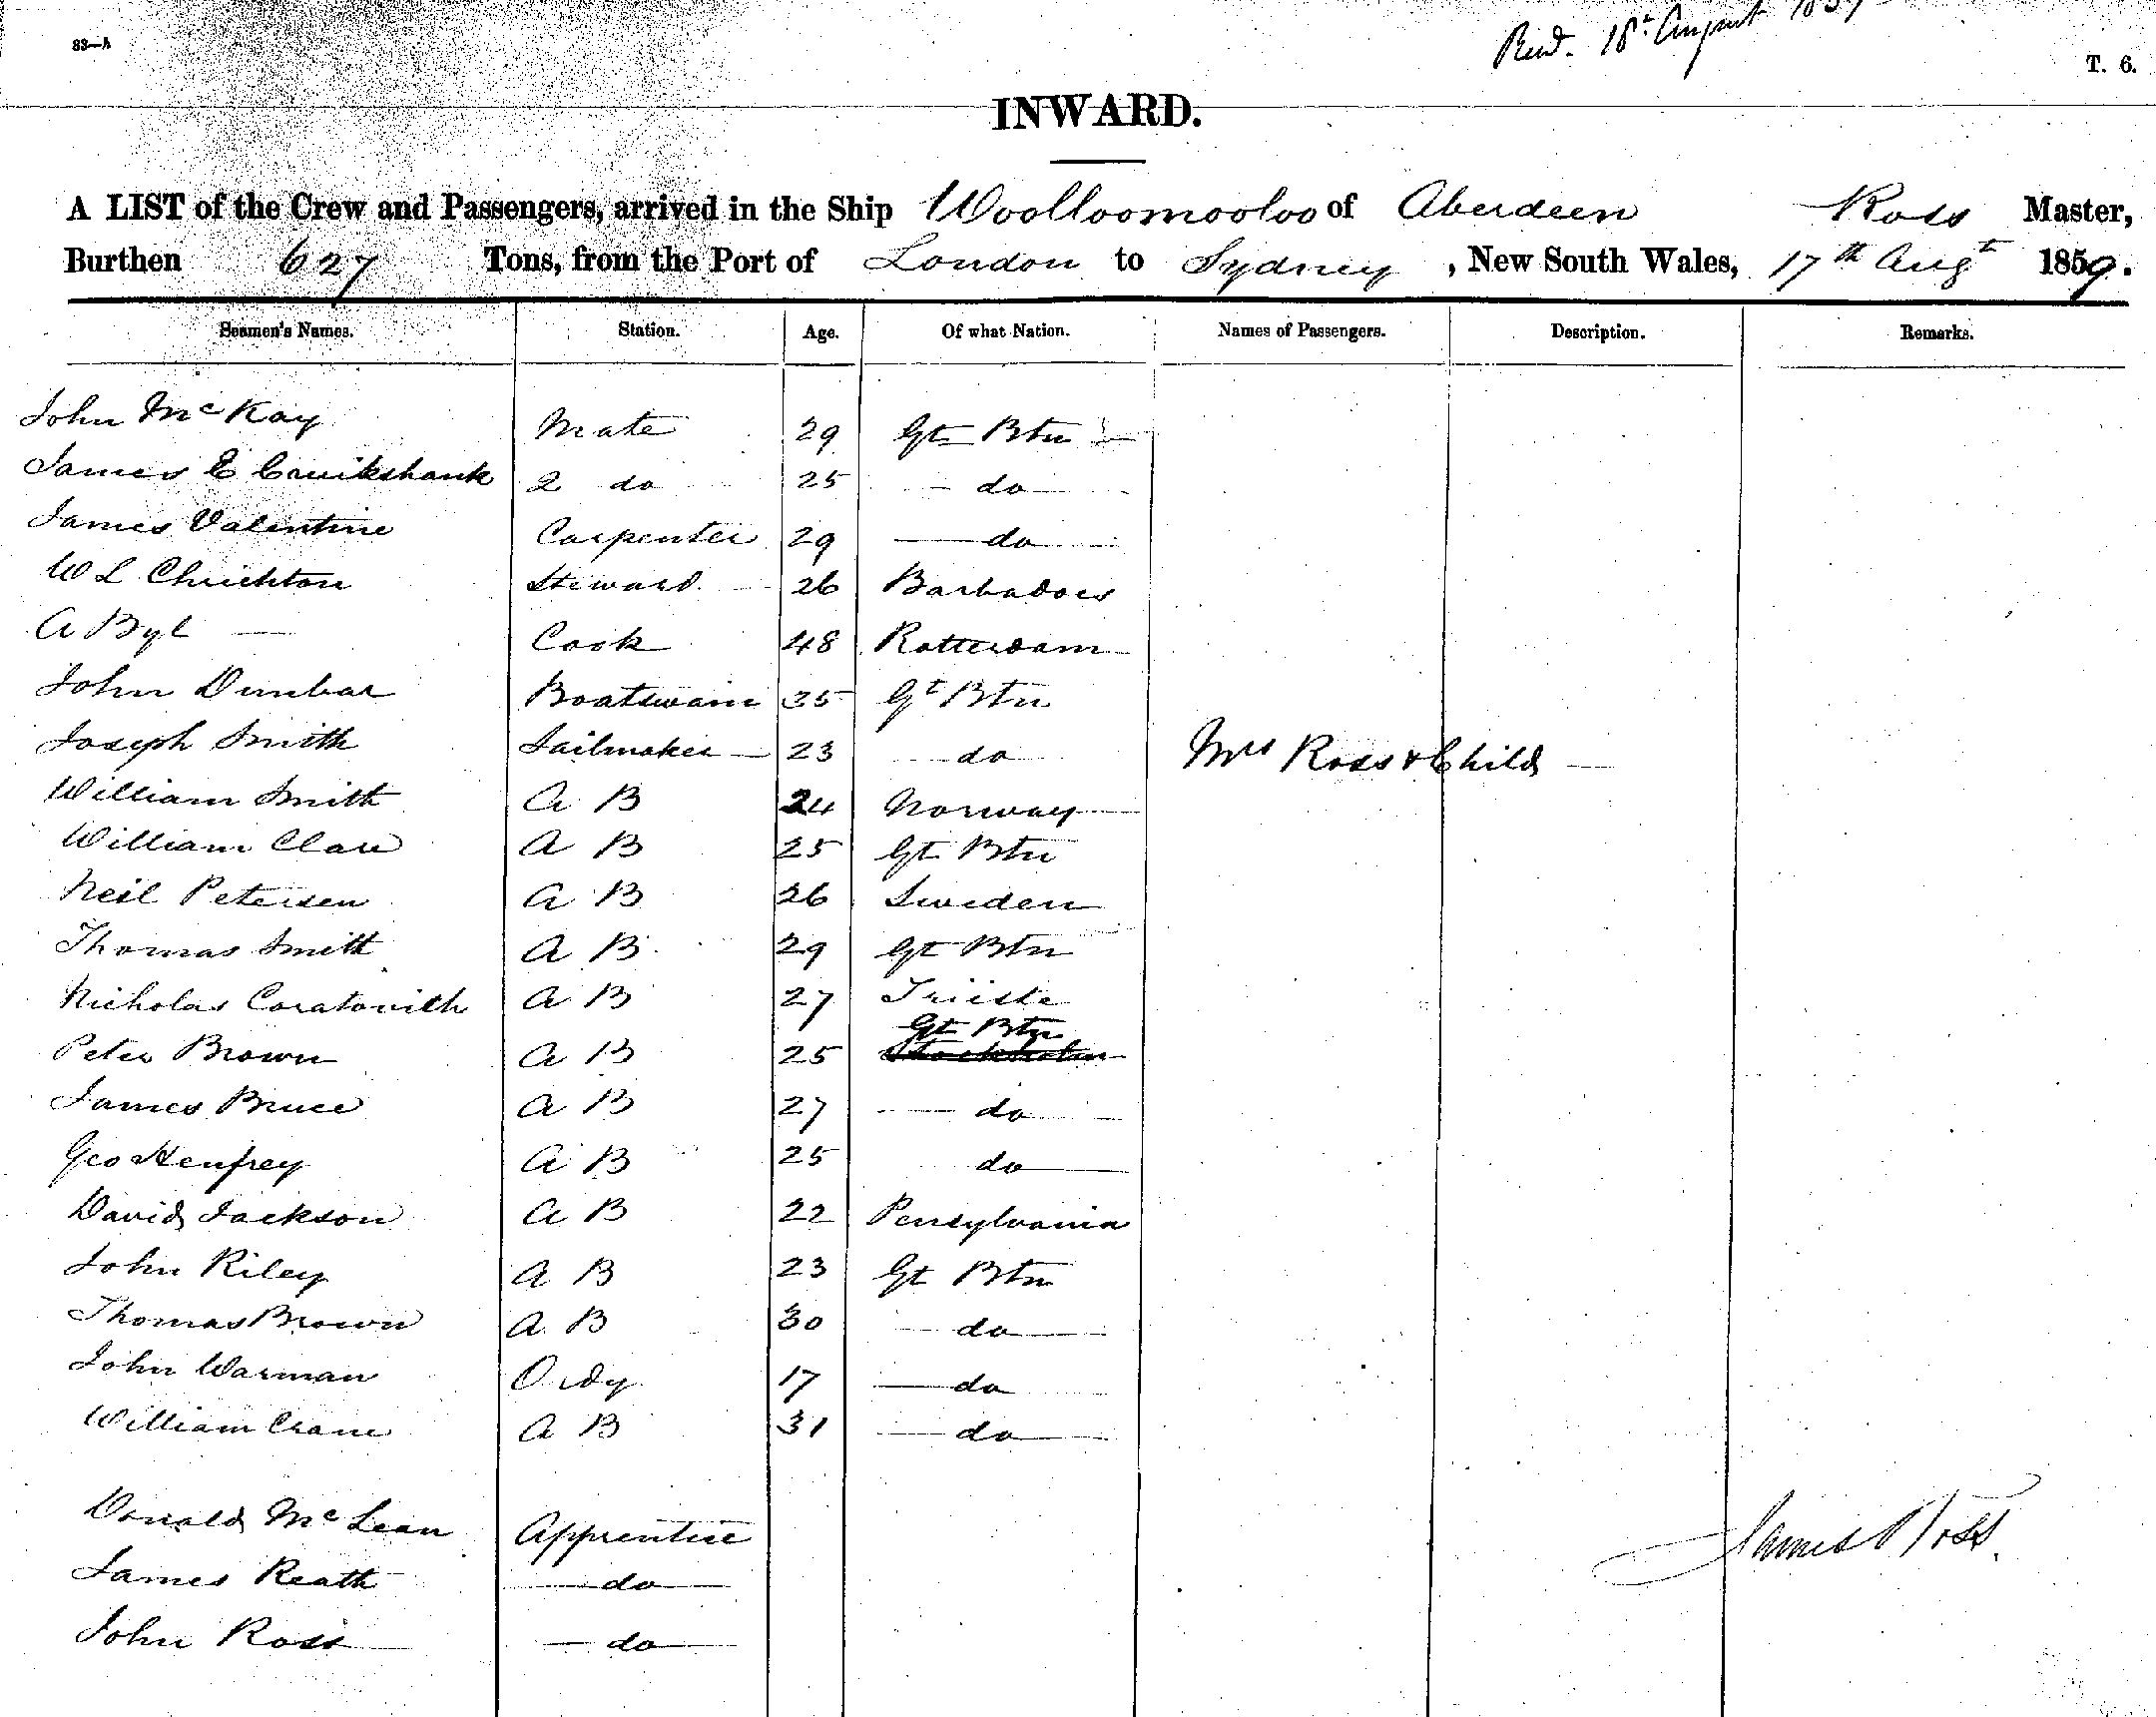 83—A
Recd. 18th August 1859
T. 6.
INWARD.
A LIST of the Crew and Passengers, arrived in the Ship Woolloomooloo of Aberdeen Ross Master,
Burthen 627 Tons, from the Port of London to Sydney, New South Wales, 17th Augt 1859.
Seamen's Names. Station. Age. Of what Nation. Names of Passengers. Description. Remarks.
John McKay Mate 29 Gt Btn
James E Cruikshank 2 do 25 do
James Valentine Carpenter 29 do
W L Chrichton Steward 26 Barbadoes
A Byl Cook 48 Rotterdam
John Dunbar Boatswain 35 Gt Btn
Joseph Smith Sailmaker 23 do Mrs Ross & Child
William Smith A B 24 Norway
William Clau A B 25 Gt Btn
Neil Petersen A B 26 Sweden
Thomas Smith A B 29 Gt Btn
Nicholas Coratovith A B 27 Trieste
Gt Btn
Peter Brown A B 25 Stockholm
James Bruce A B 27 do
Geo Henfrey A B 25 do
David Jackson A B 22 Pensylvania
John Riley A B 23 Gt Btn
Thomas Brown A B 30 do
John Warman Ordy 17 do
William Crane A B 31 do
Donald McLean Apprentice
James Ross.
James Reath do
John Ross do